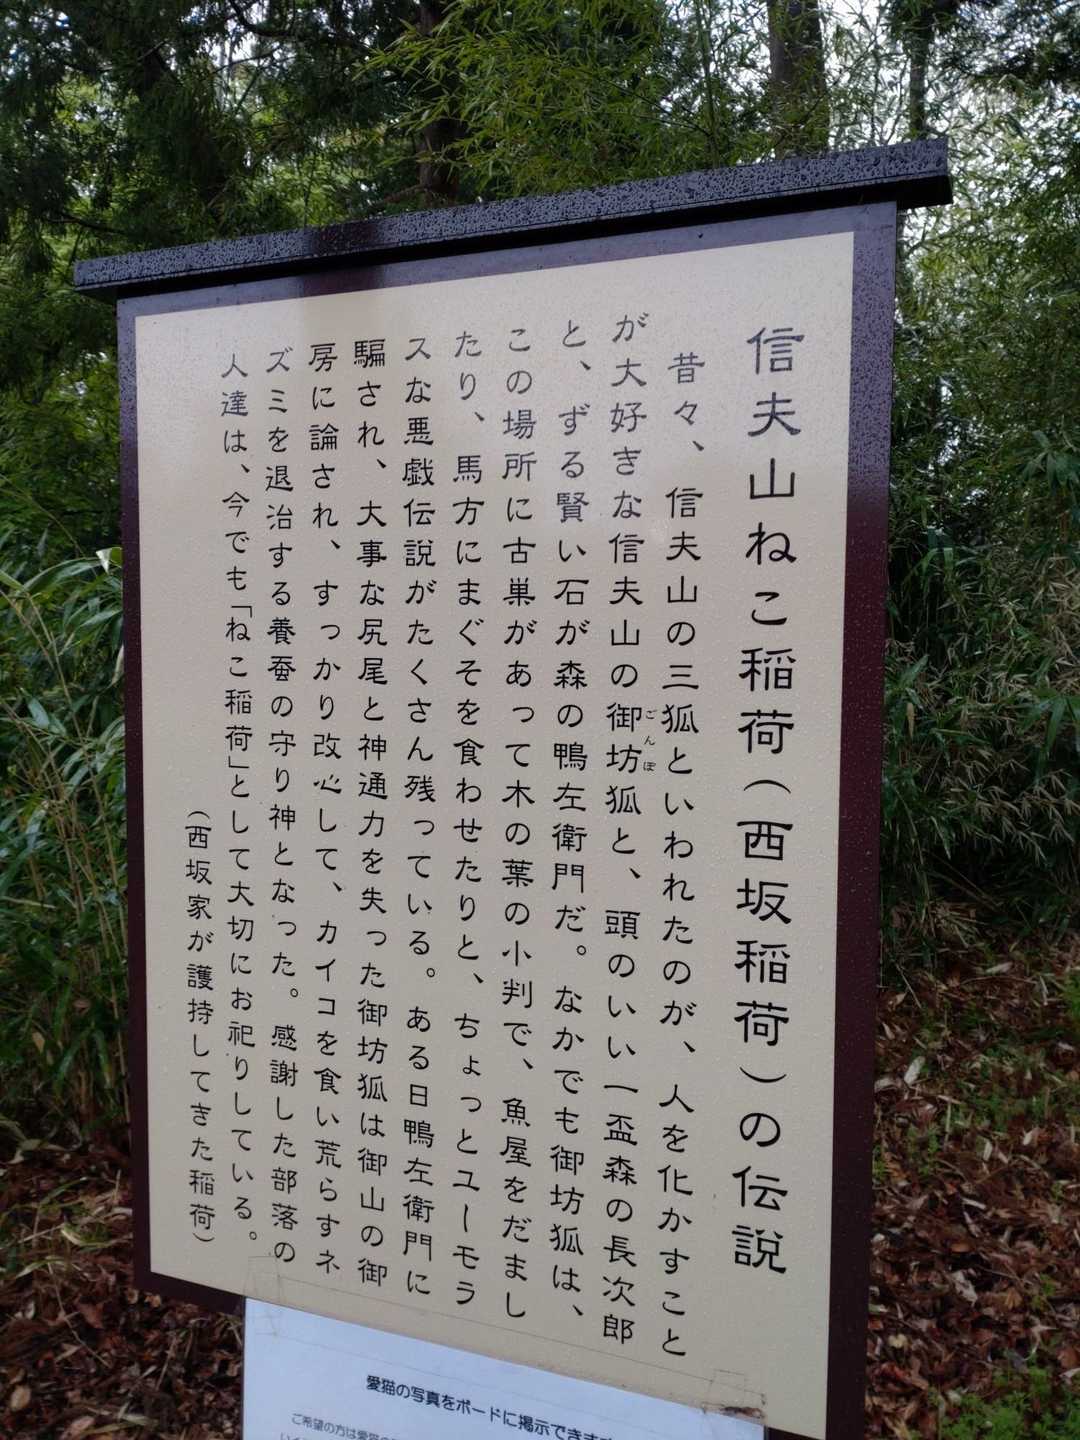 信夫山ねこ稲荷(西坂稲荷)の伝説
昔々、信夫山の三狐といわれたのが、人を化かすこと
が大好きな信夫山の御坊狐と、頭のいい一盃森の長次郎
ごんぼ
と、ずる賢い石が森の鴨左衛門だ。なかでも御坊狐は、
この場所に古巣があって木の葉の小判で、魚屋をだまし
たり、馬方にまぐそを食わせたりと、ちょっとユーモラ
スな悪戯伝説がたくさん残っている。ある日鴨左衛門に
騙され、大事な尻尾と神通力を失った御坊狐は御山の御
房に諭され、すっかり改心して、カイコを食い荒らすネ
ズミを退治する養蚕の守り神となった。感謝した部落の
人達は、今でも「ねこ稲荷」として大切にお祀りしている。
(西坂家が護持してきた稲荷)
愛猫の写真をボードに掲示できます
ご希望の方は愛猫の